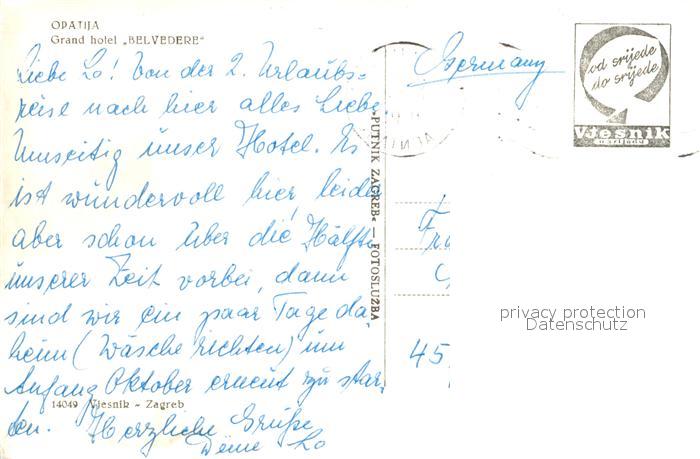 OPATIJA
Grand hotel „BELVEDERE“
Liebe Lo! Von der 2. Urlaubs-
reise nach hier alles Liebe.
Umseitig unser Hotel. Es
ist wundervoll hier, leider
aber schon über die Hälfte
unserer Zeit vorbei, dann
sind wir ein paar Tage da-
heim (Wäsche richten) um
Anfang Oktober erneut zu star-
ten. Herzliche Grüße
Deine Lo
14049 Vjesnik - Zagreb
»PUTNIK ZAGREB« — FOTOSLUŽBA
Germany
od srijede
do srijede
Vjesnik
u srijedu
45
privacy protection
Datenschutz